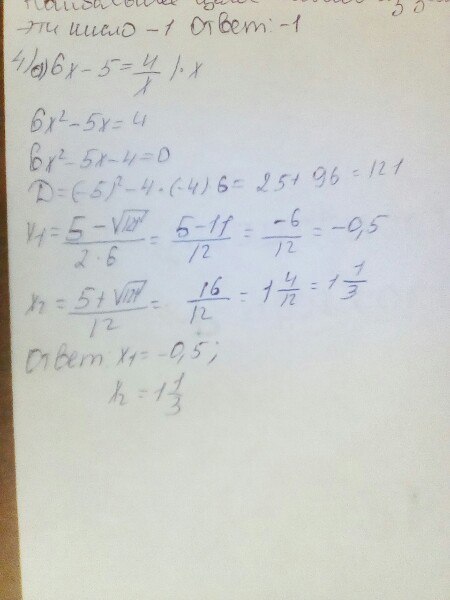 Наибольшее целое
эти число -1 Ответ: -1
4) а) 6x - 5 = 4/x | · x
6x² - 5x = 4
6x² - 5x - 4 = 0
D = (-5)² - 4 · (-4) 6 = 25 + 96 = 121
x₁ = (5 - √121)/(2 · 6) = (5 - 11)/12 = -6/12 = -0,5
x₂ = (5 + √121)/12 = 16/12 = 1 4/12 = 1 1/3
Ответ x₁ = -0,5;
x₂ = 1 1/3